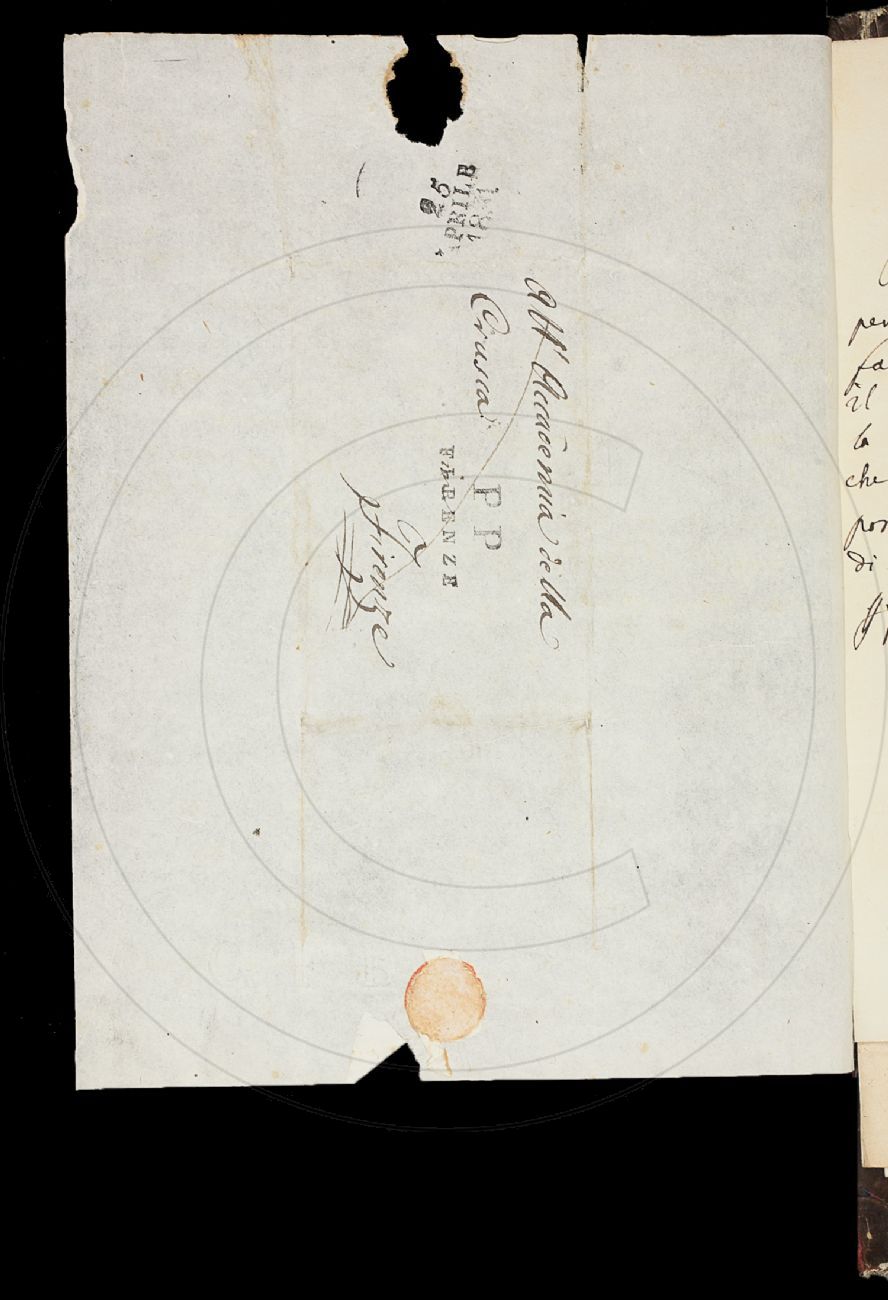 25
APRILE
All' Accademia della
Crusca
PP
FIRENZE
a
Firenze
per
il
la
che
di